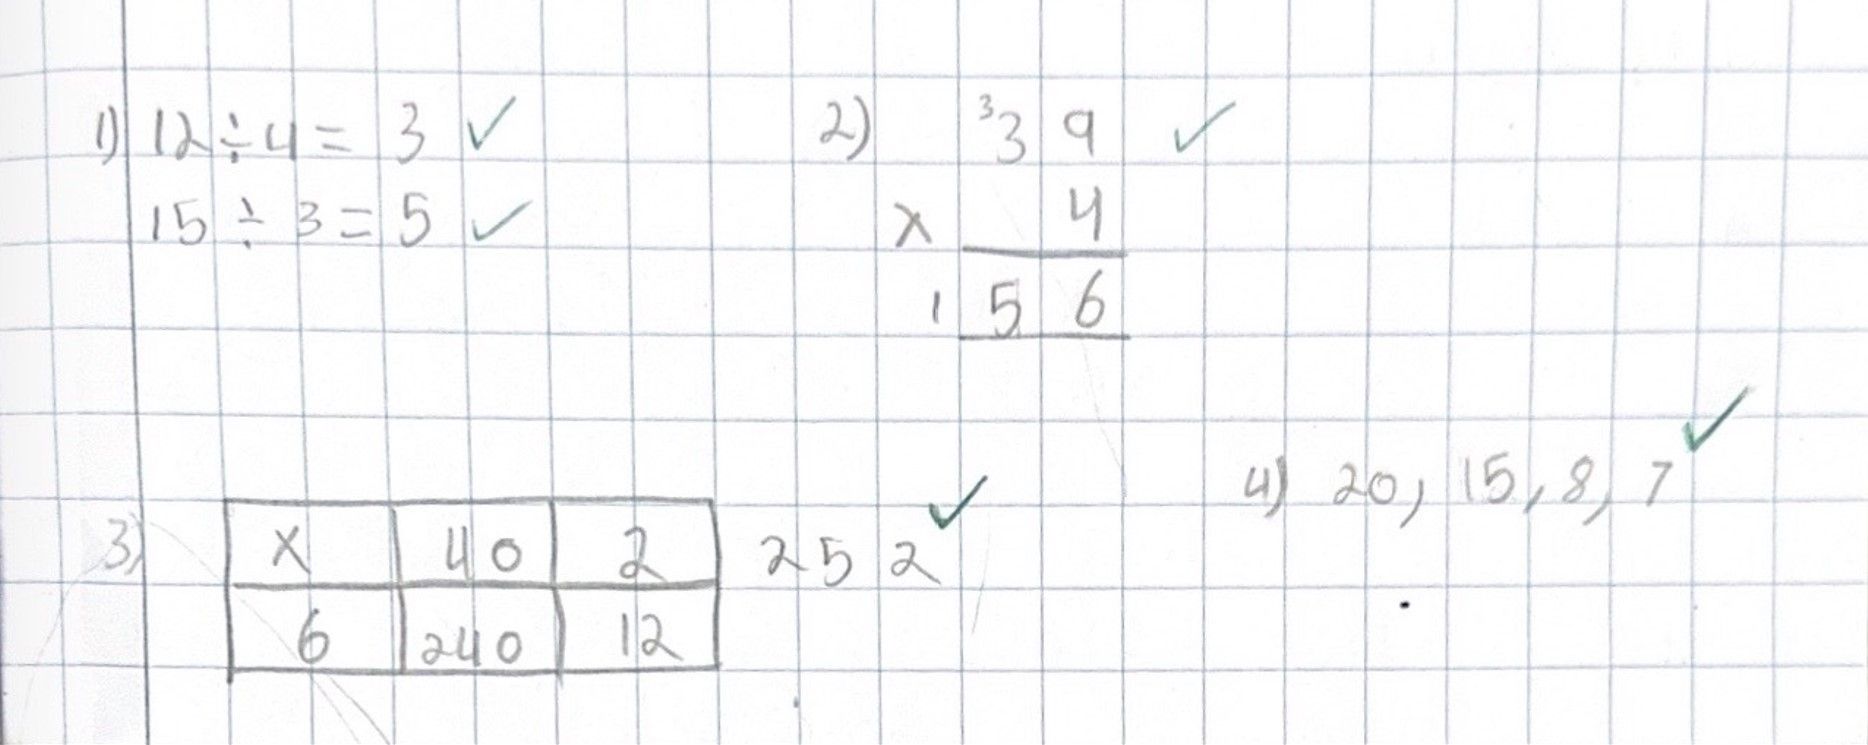 1) 12 ÷ 4 = 3 ✓
15 ÷ 3 = 5 ✓
2) ³3 9 ✓
x 4
1 5 6
3) x 40 2 252 ✓
6 240 12
4) 20, 15, 8, 7 ✓